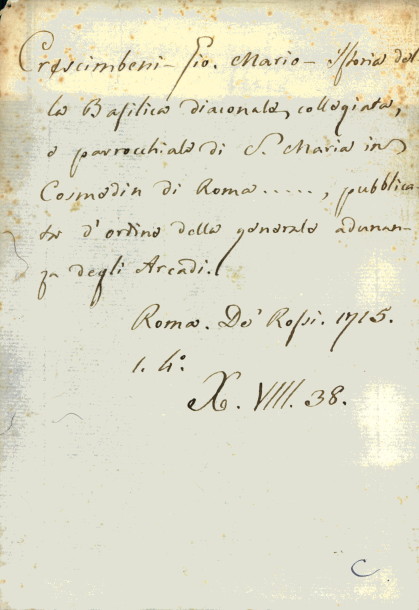 Crescimbeni - Gio. Mario - istoria del
la Basilica diaconale, collegiata,
e parrocchiale di S. Maria in
Cosmedin di Roma....., pubblica-
ta d'ordine della generale adunan-
za degli Arcadi.
Roma. De' Rossi. 1715.
1. 4°.
X. VIII. 38.
C